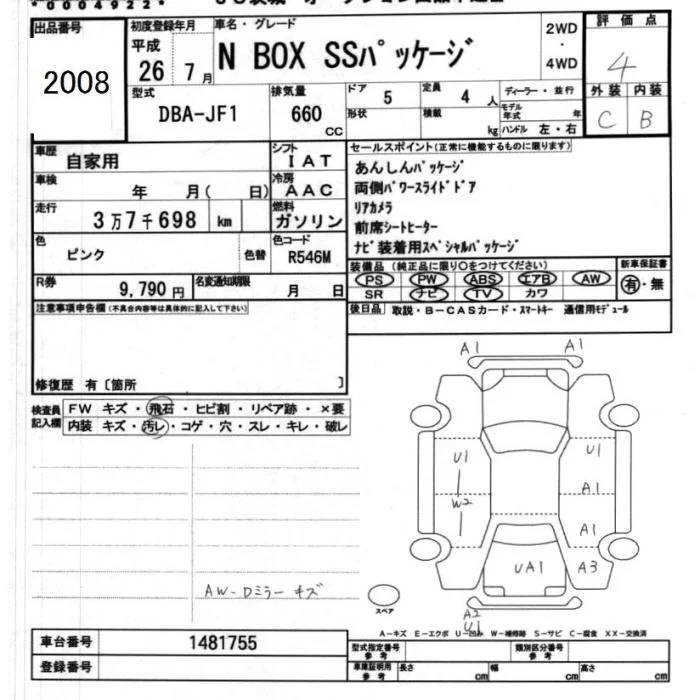 *0004922*
出品番号
2008
初度登録年月
平成
26 7月
車名・グレード
N BOX SSパッケージ
2WD
・
4WD
評価点
4
外装 内装
C B
型式
DBA-JF1
排気量
660 CC
ドア 5
形状
定員 4 人
積載 kg
ディーラー・並行
モデル年式 年
ハンドル 左・右
車歴
自家用
シフト
IAT
車検
年 月( 日)
冷房
AAC
走行
3万7千698 km
燃料
ガソリン
色
ピンク
色替
色コード
R546M
R券
9,790円
名変通知期限
月 日
セールスポイント(正常に機能するものに限ります)
あんしんパッケージ
両側パワースライドドア
リアカメラ
前席シートヒーター
ナビ装着用スペシャルパッケージ
装備品(純正品に限り○をつけてください)
PS PW ABS エアB AW
SR ナビ TV カワ
新車保証書
有・無
後日品
取説・B-CASカード・スマートキー 通信用モデュール
注意事項申告欄(不具合内容等は具体的に記入して下さい)
修復歴 有〔箇所 〕
検査員記入欄
FW キズ・飛石・ヒビ割・リペア跡・×要
内装 キズ・汚レ・コゲ・穴・スレ・キレ・破レ
AW-Dミラー キズ
A1 A1
U1 U1
A1
W2
A1
UA1 A3
A2
U1
スペア
A-キズ E-エクボ U-凹み W-補修跡 S-サビ C-腐食 XX-交換済
車台番号
1481755
登録番号
型式指定番号
参考
類別区分番号
参考
車庫証明用
参考
長さ cm
幅 cm
高さ cm